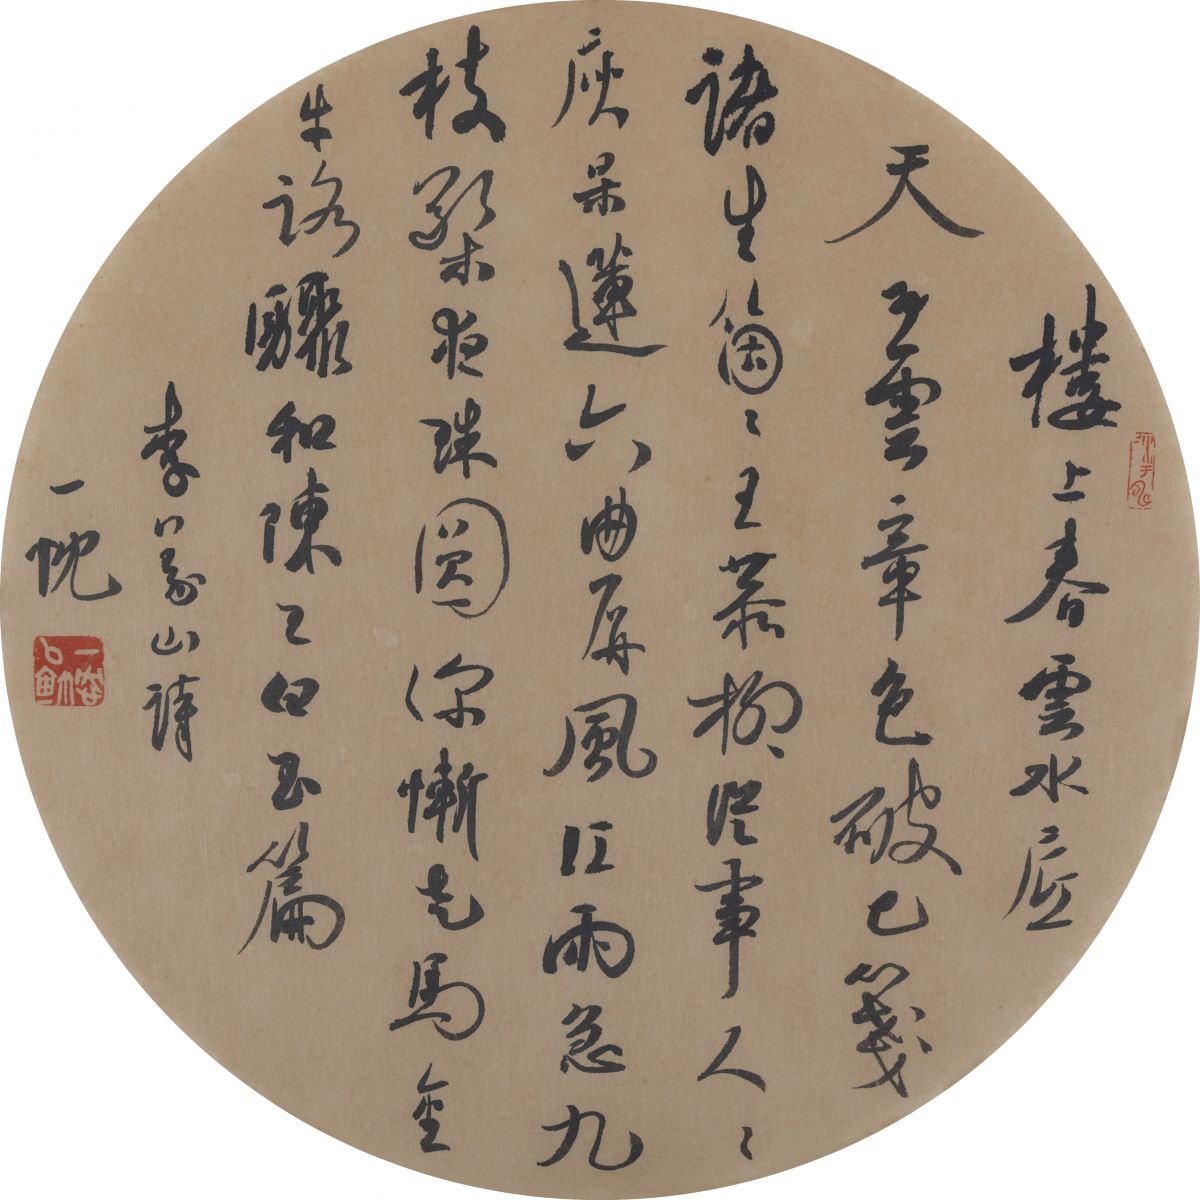 樓上春雲水底
天五雲章色破巴箋
諸生箇々王恭柳從事人々
庾杲蓮六曲屏風江雨急九
枝檠夜珠圓深慚走馬金
牛路驟和陳王白玉篇
李義山詩
一忱